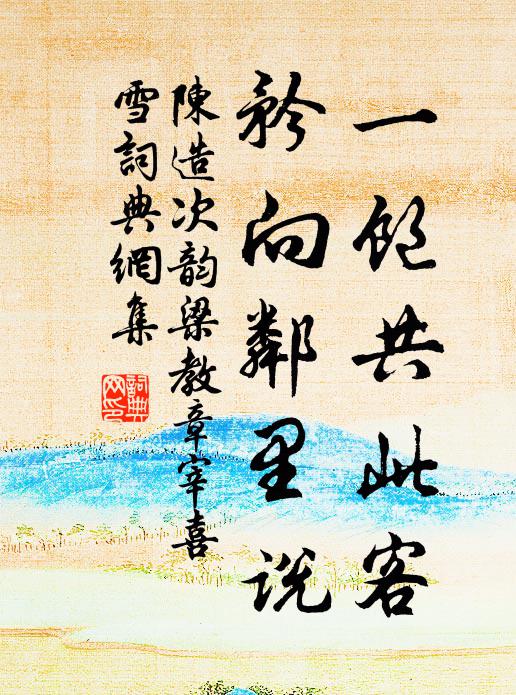 一飽共此客
矜向鄰里説
陳造次韵梁教章宰喜
雪詞典網集
詞典網印